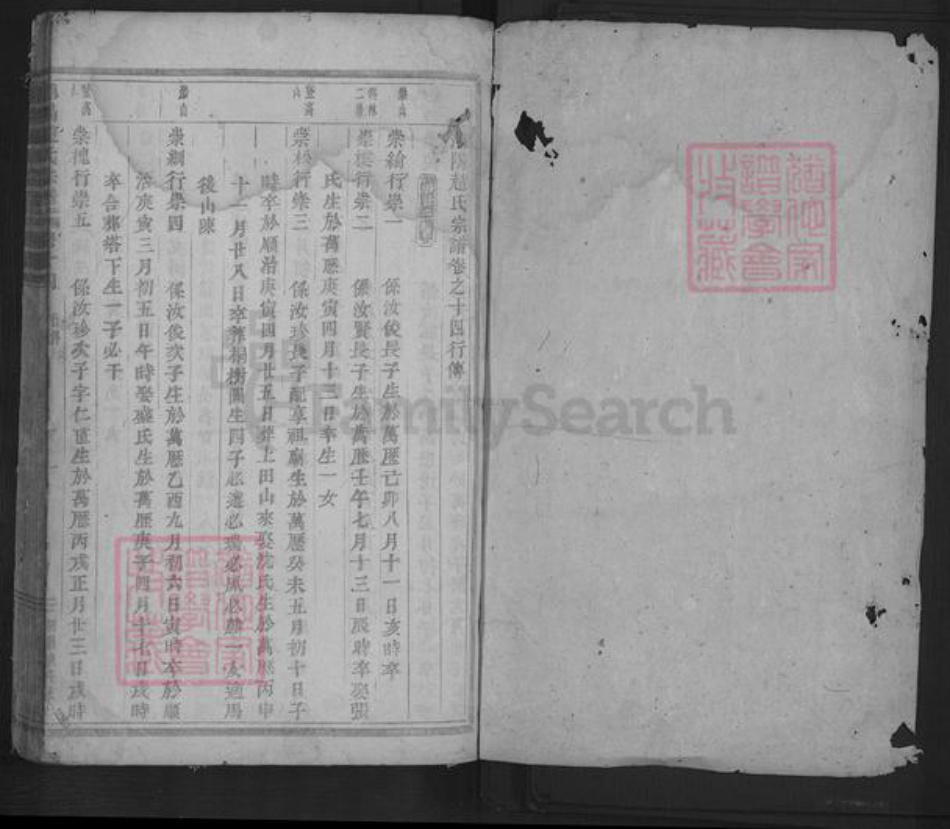 趙氏宗譜卷之十四行傳
崇繪行崇一 係汝俊長子生於萬歷己卯八月十一日亥時卒
行崇二 係汝賢長子生於萬歷壬午七月十三日辰時卒娶張
氏生於萬歷庚寅四月十三日卒生一女
行崇三 係汝珍長子配享祖廟生於萬歷癸未五月初十日子
時卒於順治庚寅四月廿五日葬上田山來娶沈氏生於萬歷丙申
十一月廿八日卒葬桐樹園生四子必達必瑞必鳳必麟一女適馬
後山陳
行崇四 係汝俊次子生於萬歷乙酉九月初六日寅時卒於順
治庚寅三月初五日午時娶盛氏生於萬歷庚子四月十七日戌時
卒合葬塔下生一子必干
行崇五 係汝珍次子字仁宣生於萬歷丙戌正月廿三日戌時
猶他家譜學會收藏
猶他家譜學會收藏
FamilySearch